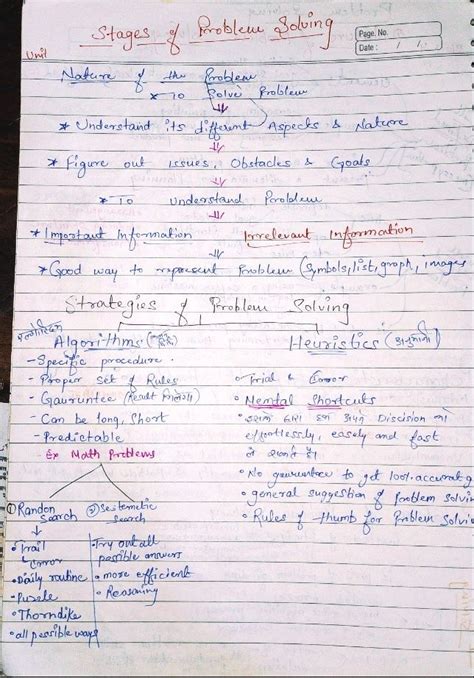 Stages of Problem Solving
Page. No.
Date : / /
Unit
Nature of the Problem
* To Solve Problem
* Understand its different Aspects & Nature
* Figure out issues, Obstacles & Goals
* To Understand Problem
* Important Information Irrelevant Information
* Good way to represent Problem (Symbols, list, graph, images
Strategies of Problem Solving
Algorithms Heuristics
- Specific procedure.
- Proper set of Rules
- Gauruntee (Result
- Can be long, Short
- Predictable
- Ex Math Problems
• Trial & Error
• Mental Shortcuts
Discision
effortlessly, easily and fast
• No gauruntee to get 100% accurate
• general suggestion of problem solvin
• Rules of thumb for Problem Solvin
① Randon Search
② Sestematic Search
• Trail
Error
• Daily routine
• Puzzle
• Thorndike
• all possible ways
• Try out all
possible answers
• more efficient
• Reasoning